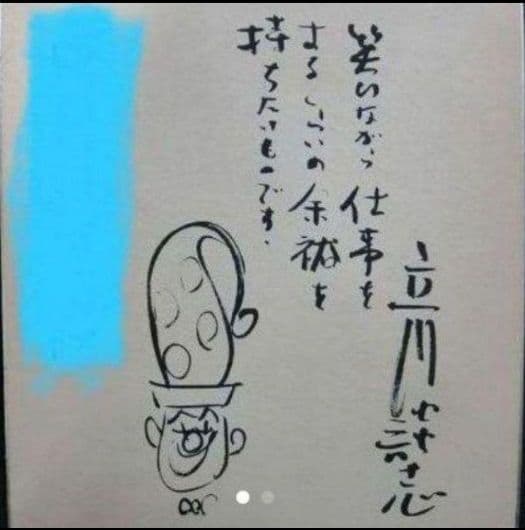 笑いながら仕事を
するくらいの余裕を
持ちたいものです。
立川談志